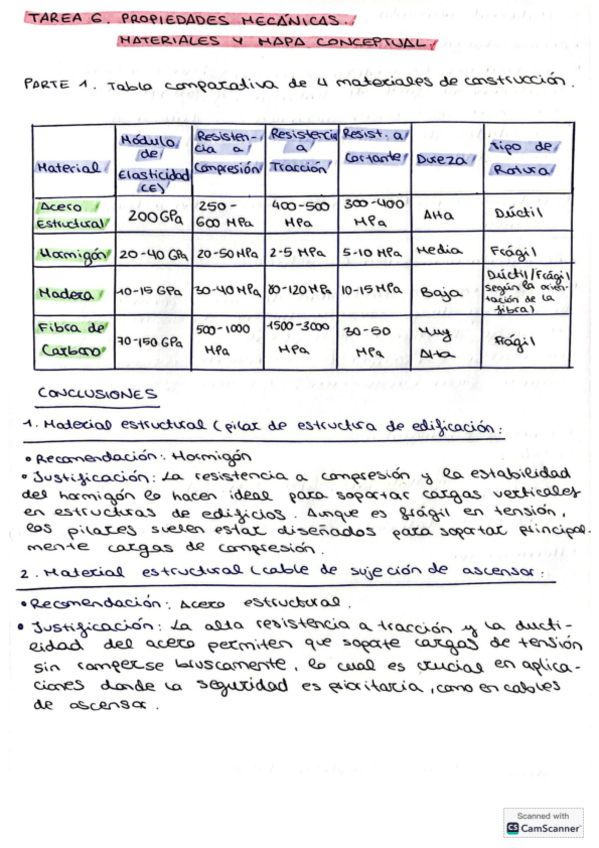 TAREA 6. PROPIEDADES MECÁNICAS.
MATERIALES Y MAPA CONCEPTUAL.
PARTE 1. Tabla comparativa de 4 materiales de construcción.
Material | Módulo de Elasticidad (E) | Resistencia a Compresión | Resistencia a Tracción | Resist. a Cortante | Dureza | Tipo de Rotura
Acero Estructural | 200 GPa | 250-600 MPa | 400-500 MPa | 300-400 MPa | Alta | Dúctil
Hormigón | 20-40 GPa | 20-50 MPa | 2-5 MPa | 5-10 MPa | Media | Frágil
Madera | 10-15 GPa | 30-40 MPa | 80-120 MPa | 10-15 MPa | Baja | Dúctil/Frágil según la orientación de la fibra)
Fibra de Carbono | 70-150 GPa | 500-1000 MPa | 1500-3000 MPa | 30-50 MPa | Muy Alta | Frágil
CONCLUSIONES
1. Material estructural (pilar de estructura de edificación:
• Recomendación: Hormigón
• Justificación: La resistencia a compresión y la estabilidad
del hormigón lo hacen ideal para soportar cargas verticales
en estructuras de edificios. Aunque es frágil en tensión,
los pilares suelen estar diseñados para soportar principal-
mente cargas de compresión.
2. Material estructural (cable de sujeción de ascensor:
• Recomendación: Acero estructural.
• Justificación: La alta resistencia a tracción y la ducti-
lidad del acero permiten que soporte cargas de tensión
sin romperse bruscamente, lo cual es crucial en aplica-
ciones donde la seguridad es prioritaria, como en cables
de ascensor.
Scanned with
CS CamScanner